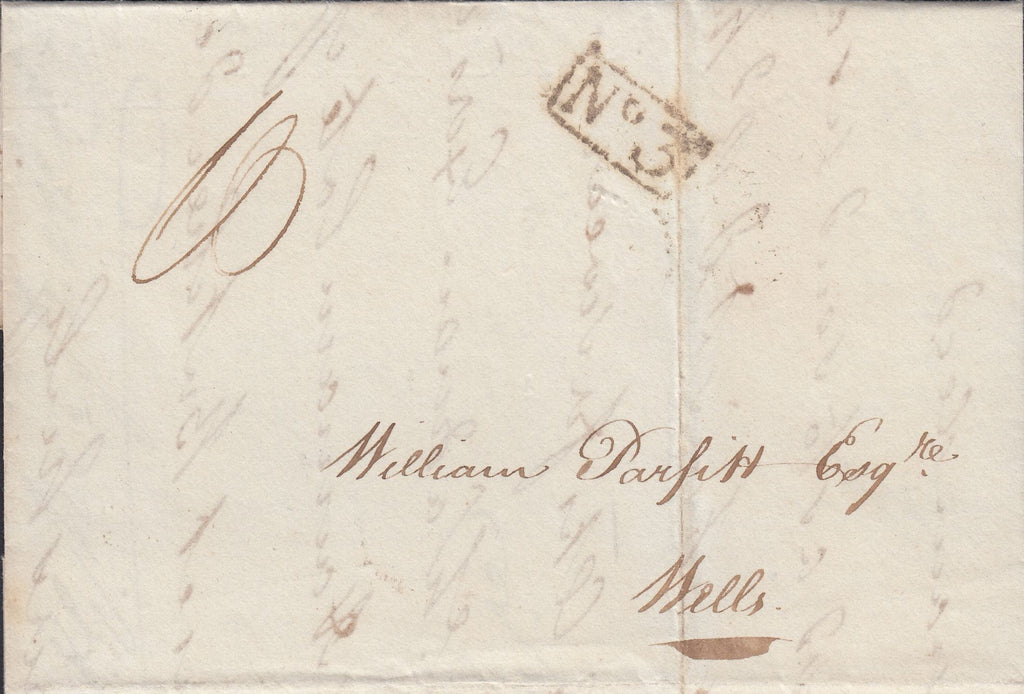 6
No. 3
William Parfitt Esqre.
Wells.